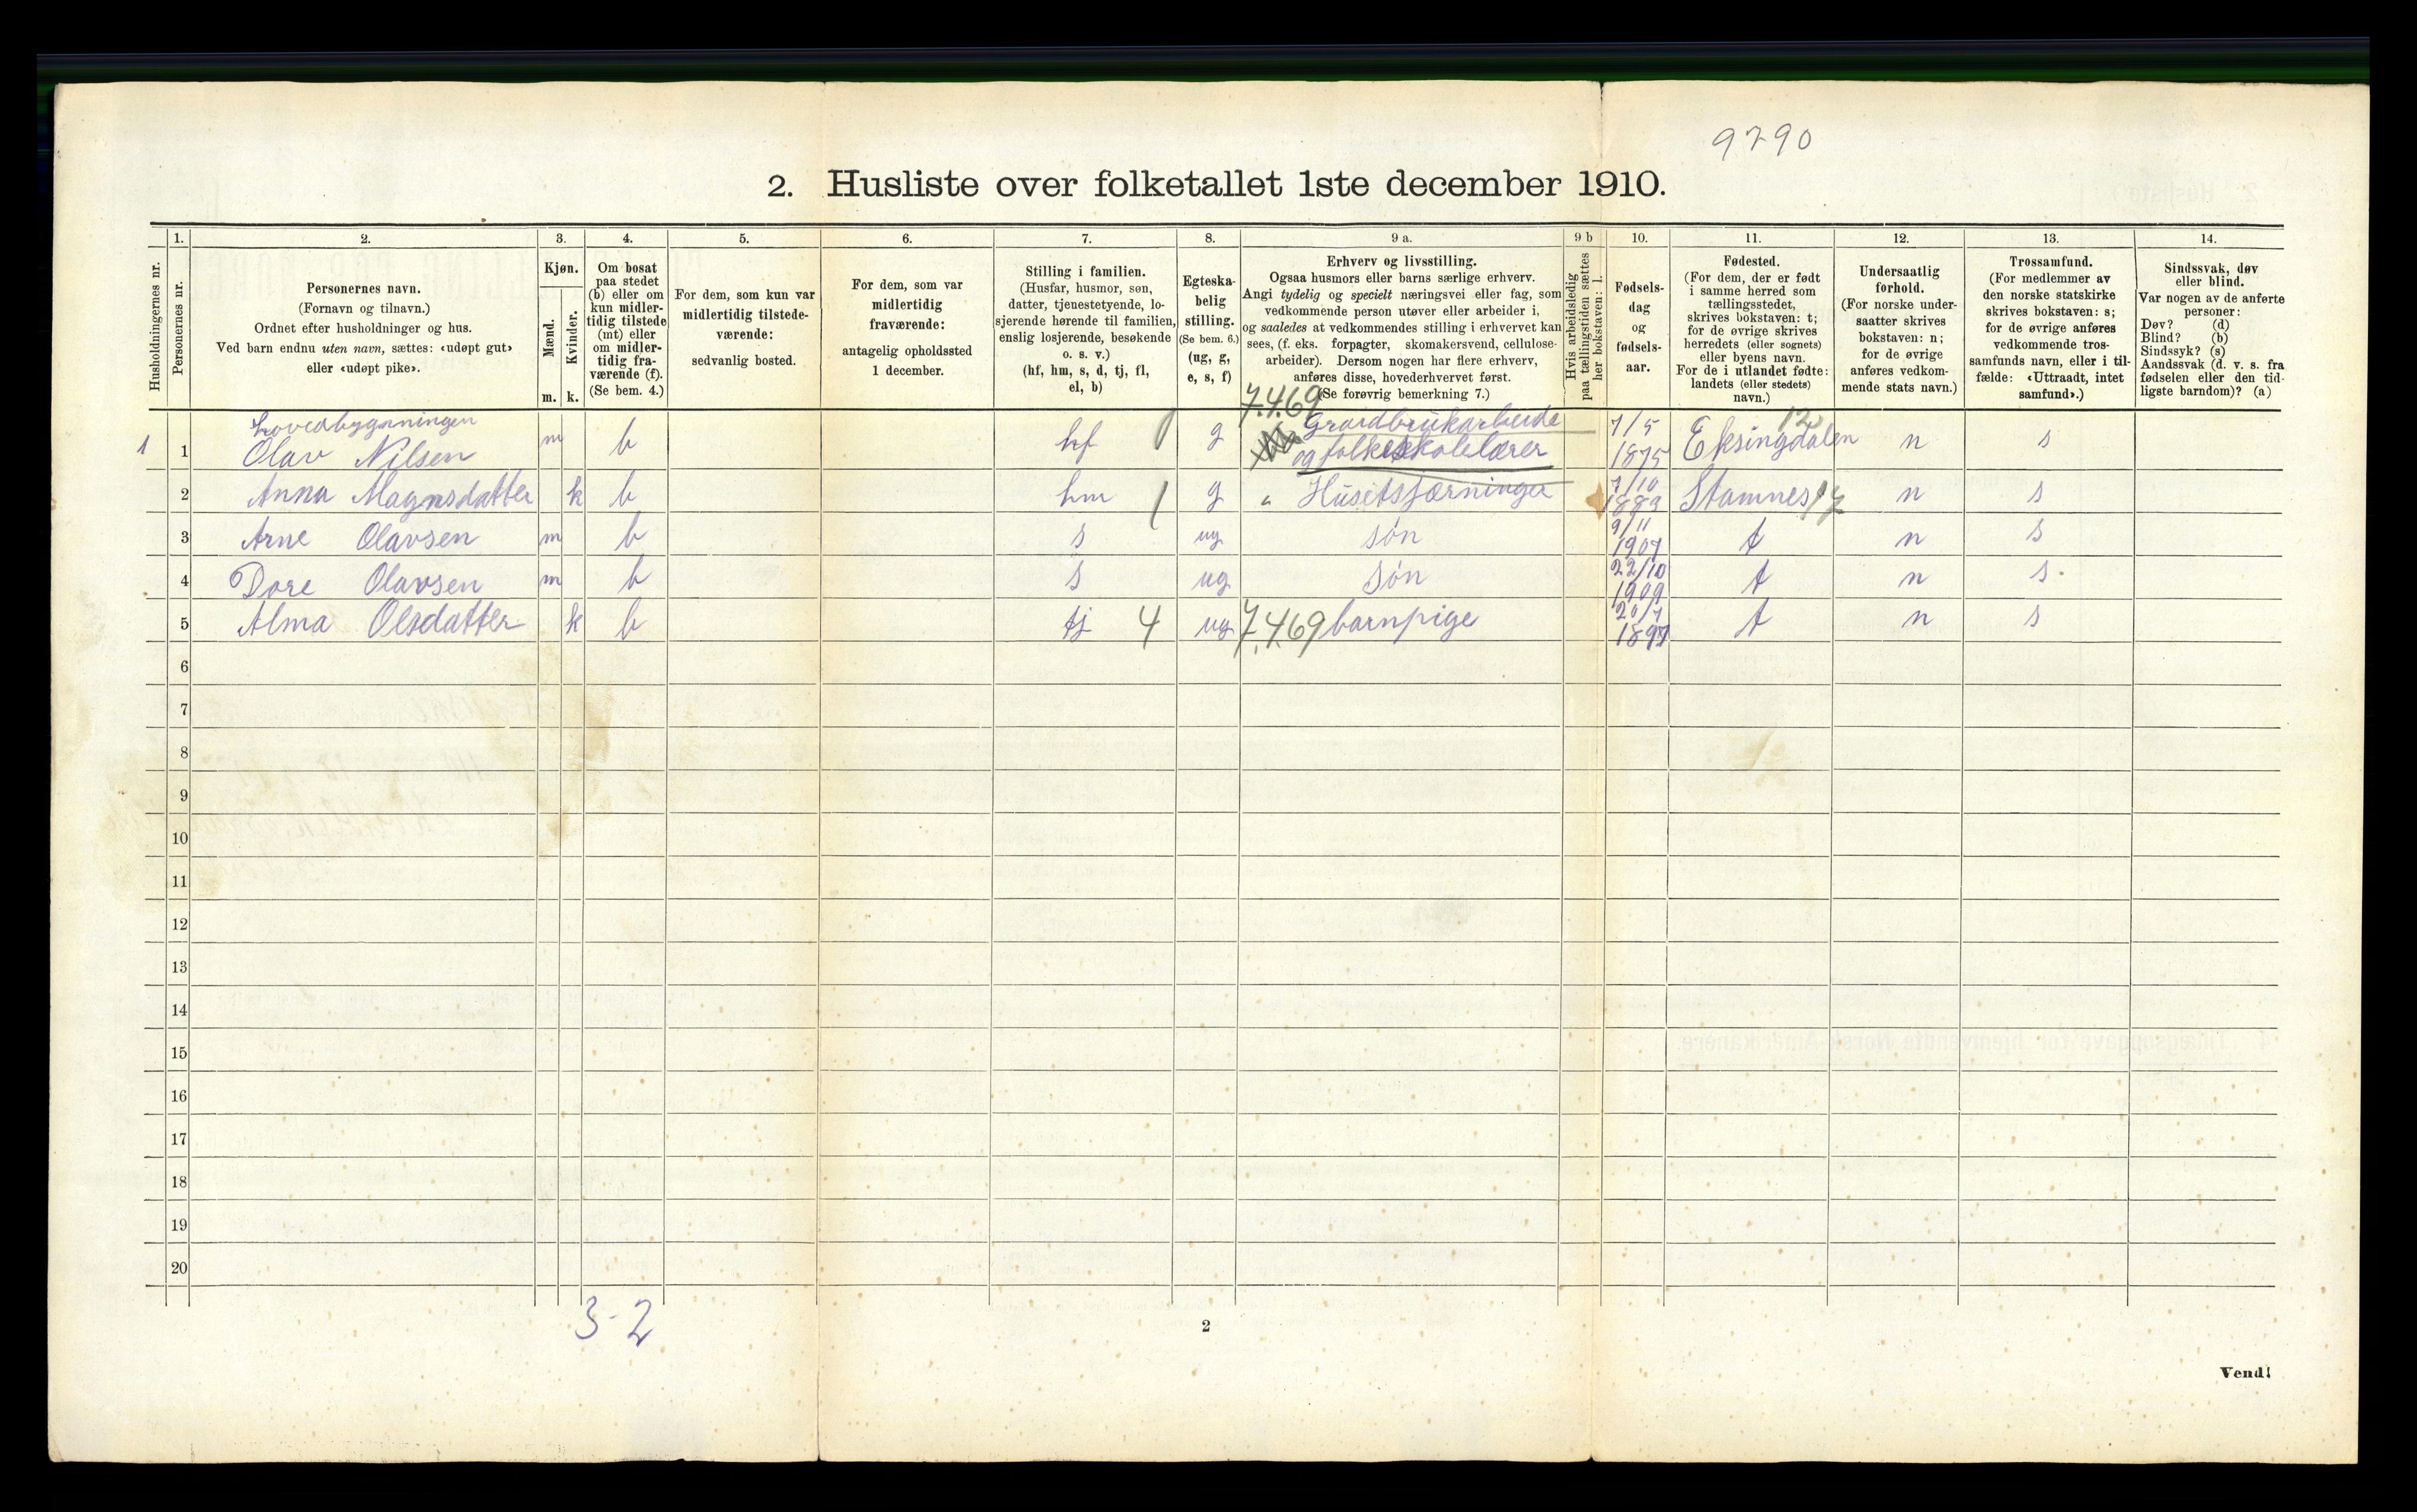 9790
2. Husliste over folketallet 1ste december 1910.
Husholdningernes nr.
1.
Personernes nr.
2.
Personernes navn.
(Fornavn og tilnavn.)
Ordnet efter husholdninger og hus.
Ved barn endnu uten navn, sættes: «udøpt gut»
eller «udøpt pike».
3.
Kjøn.
Mænd.
Kvinder.
m. k.
4.
Om bosat
paa stedet
(b) eller om
kun midler-
tidig tilstede
(mt) eller
om midler-
tidig fra-
værende (f).
(Se bem. 4.)
5.
For dem, som kun var
midlertidig tilstede-
værende:
sedvanlig bosted.
6.
For dem, som var
midlertidig
fraværende:
antagelig opholdssted
1 december.
7.
Stilling i familien.
(Husfar, husmor, søn,
datter, tjenestetyende, lo-
sjerende hørende til familien,
enslig losjerende, besøkende
o. s. v.)
(hf, hm, s, d, tj, fl,
el, b)
8.
Egteska-
belig
stilling.
(Se bem. 6.)
(ug, g,
e, s, f)
9 a.
Erhverv og livsstilling.
Ogsaa husmors eller barns særlige erhverv.
Angi tydelig og specielt næringsvei eller fag, som
vedkommende person utøver eller arbeider i,
og saaledes at vedkommendes stilling i erhvervet kan
sees, (f. eks. forpagter, skomakersvend, cellulose-
arbeider). Dersom nogen har flere erhverv,
anføres disse, hovederhvervet først.
(Se forøvrig bemerkning 7.)
9 b
Hvis arbeidsledig
paa tællingstiden sættes
her bokstaven: l.
10.
Fødsels-
dag
og
fødsels-
aar.
11.
Fødested.
(For dem, der er født
i samme herred som
tællingsstedet,
skrives bokstaven: t;
for de øvrige skrives
herredets (eller sognets)
eller byens navn.
For de i utlandet fødte:
landets (eller stedets)
navn.)
12.
Undersaatlig
forhold.
(For norske under-
saatter skrives
bokstaven: n;
for de øvrige
anføres vedkom-
mende stats navn.)
13.
Trossamfund.
(For medlemmer av
den norske statskirke
skrives bokstaven: s;
for de øvrige anføres
vedkommende tros-
samfunds navn, eller i til-
fælde: «Uttraadt, intet
samfund».)
14.
Sindssvak, døv
eller blind.
Var nogen av de anførte
personer:
Døv? (d)
Blind? (b)
Sindssyk? (s)
Aandssvak (d. v. s. fra
fødselen eller den tid-
ligste barndom)? (a)
Hovedbygsningen 7.4.69 Graidbrukarbeide 7/5 12
1 1 Olav Nilsen m b hf 1 g og folkeskolelærer 1875 Eksingdalen n s
2 Anna Magnsdatter k b hm 1 g " Husetsfærninger 7/10 1883 Stamnes 17 n s
3 Arne Olavsen m b s ug søn 9/11 1907 t n s
4 Dore Olavsen m b s ug søn 22/10 1909 t n s.
5 Alma Olsdatter k b tj 4 ug 7.469 barnpige 20/7 1897 t n s
6
7
8
9
10
11
12
13
14
15
16
17
18
19
20
3-2
2
Vend!